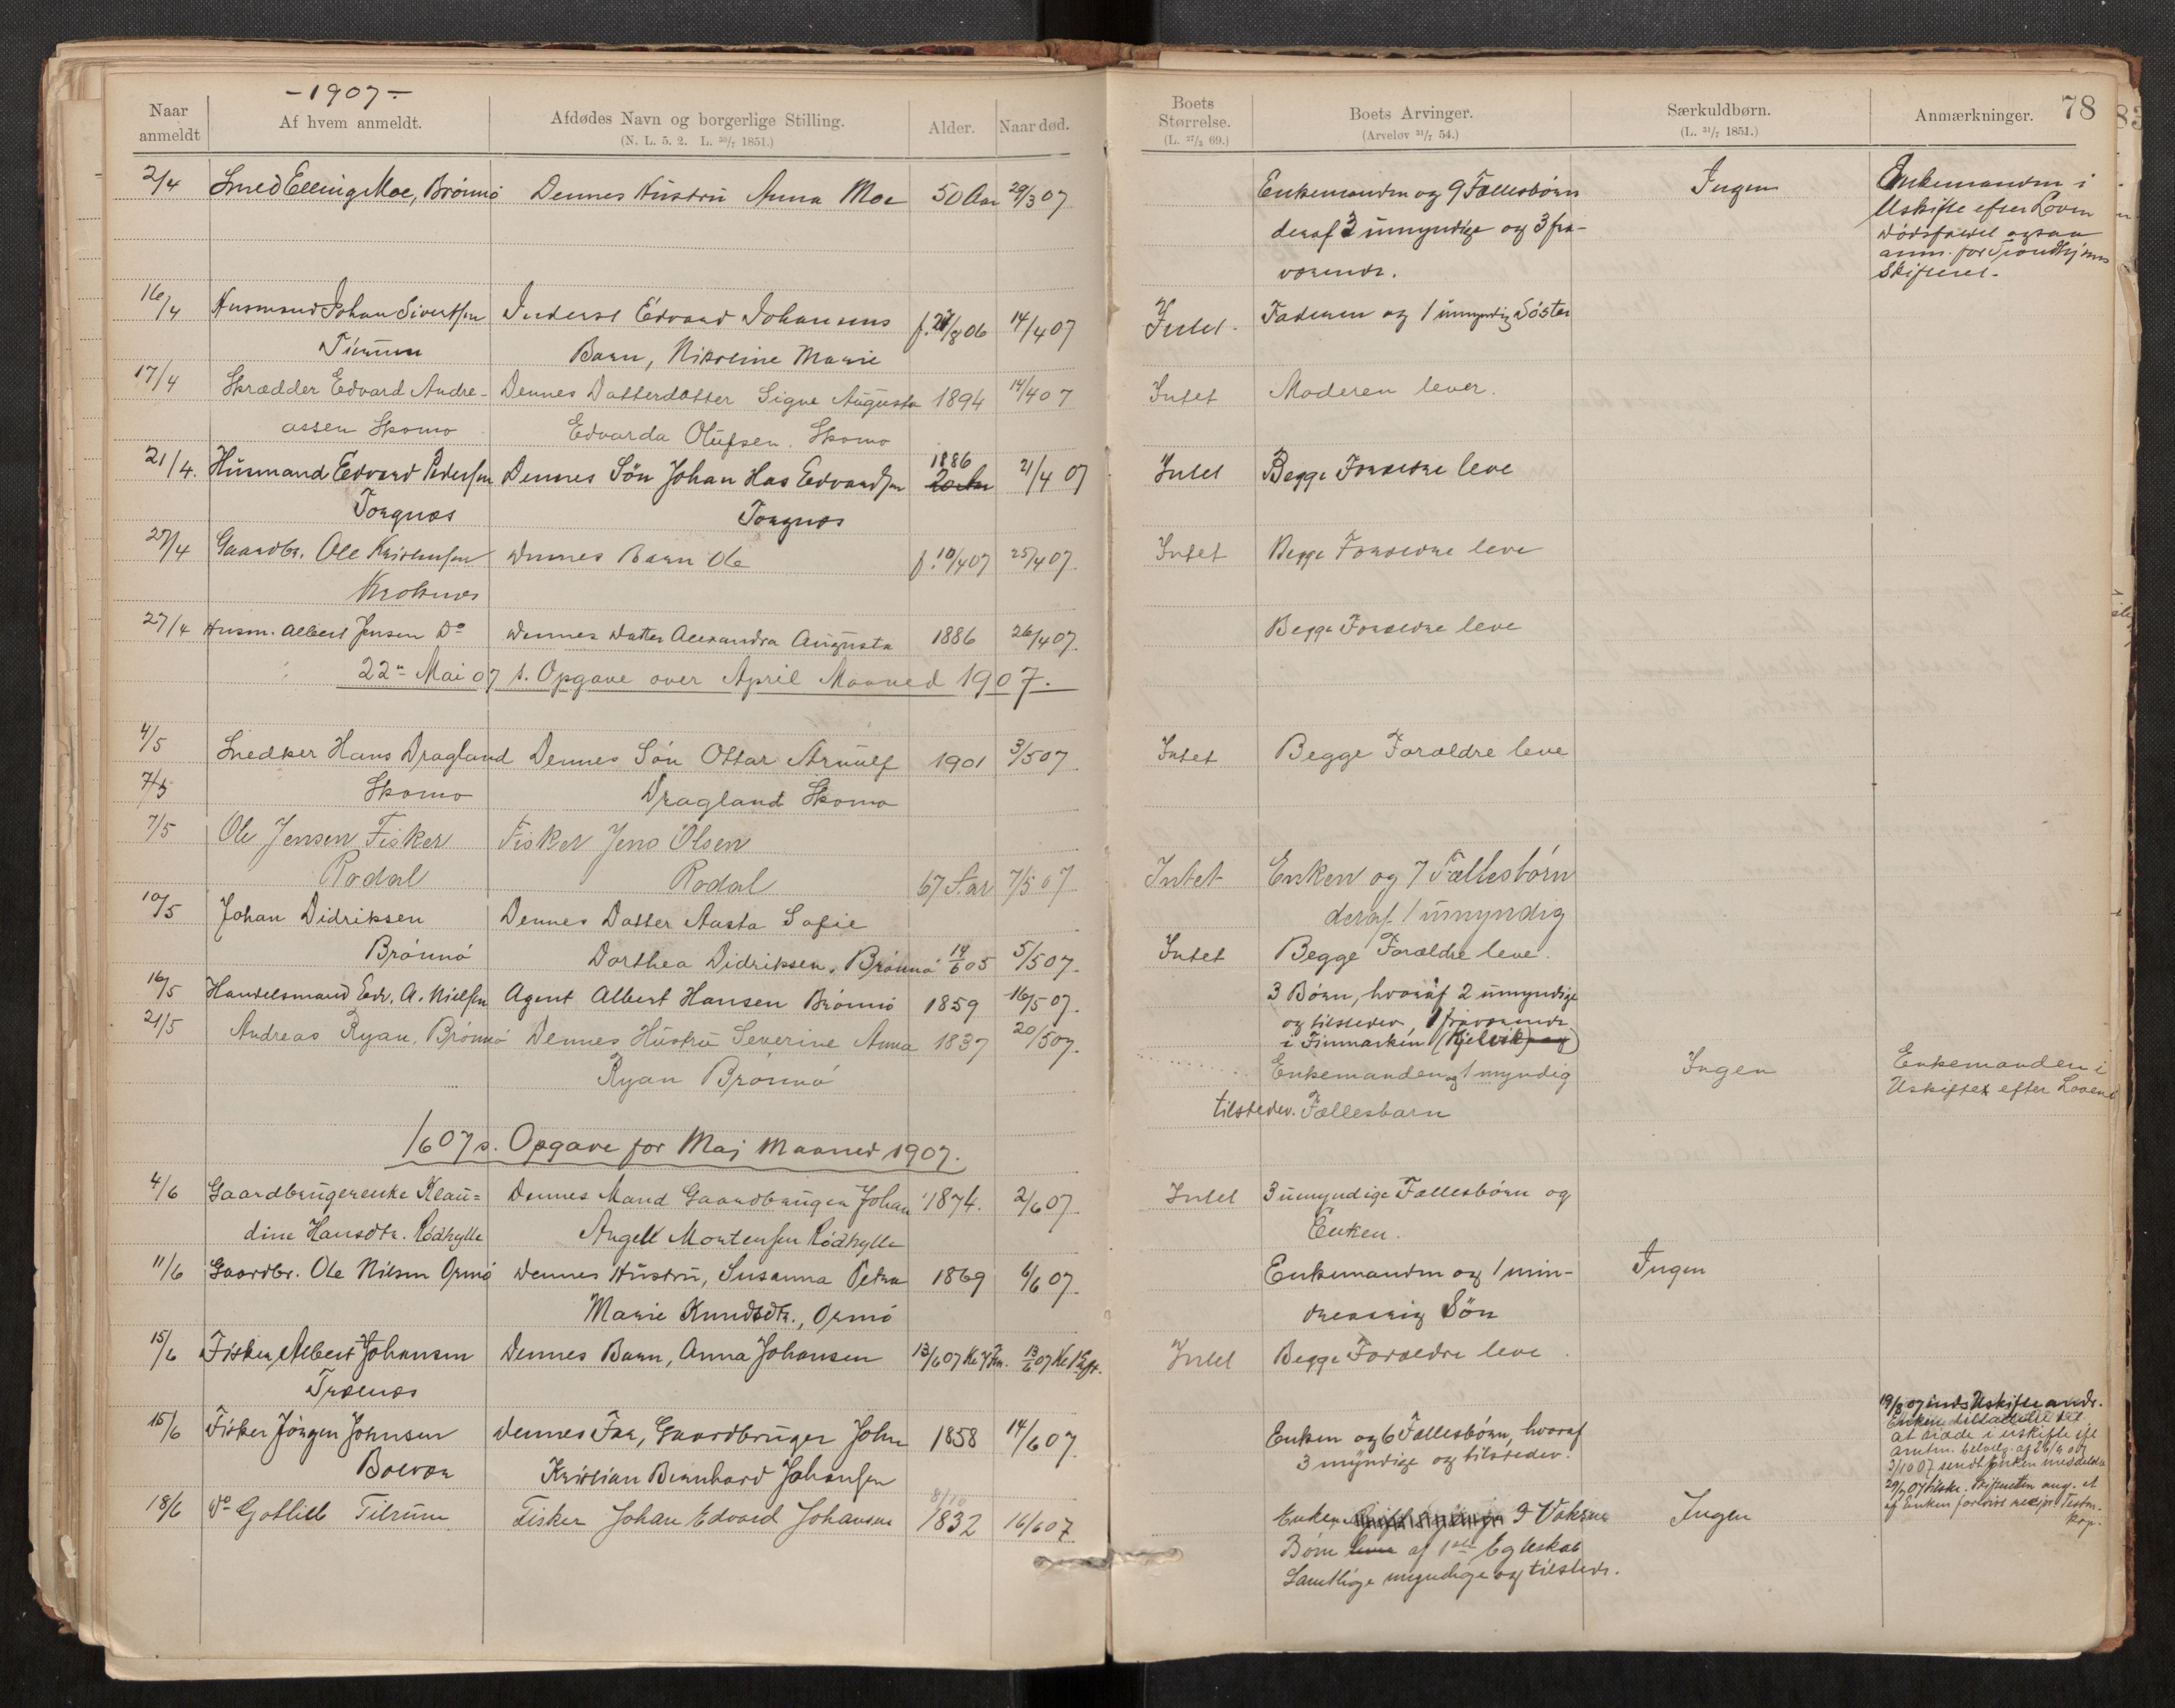 -1907-
Naar anmeldt
Af hvem anmeldt.
Afdødes Navn og borgerlige Stilling.
(N. L. 5. 2. L. 30/7 1851.)
Alder.
Naar død.
2/4 Smed Elling Moe, Brønnø Dennes Hustru Anna Moe 50 Aar 29/3 07
16/4 Husmand Johan Sivertsen Inderst Edvard Johansens f. 27/8 06 14/4 07
Tilrum Barn, Nikoline Marie
17/4 Skrædder Edvard Andre- Dennes Datterdatter Signe Augusta 1894 14/4 07
assen Skomo Edvarda Olufsen. Skomo
1886
21/4. Husmand Edvard Pedersen Dennes Søn Johan Has Edvardsen 20 Aar 21/4 07
Torgnes Torgnes
27/4 Gaardbr. Ole Kristensen Dennes Barn Ole f. 10/4 07 25/4 07.
Kroknes
27/4 Husm. Albert Jensen Do Dennes Datter Alexandra Augusta 1886 26/4 07.
22n Mai 07 s. Opgave over April Maaned 1907.
4/5 Snedker Hans Dragland Dennes Søn Ottar Arnulf 1901 3/5 07
7/5 Skomo Dragland Skomo
7/5 Ole Jensen Fisker Fisker Jens Olsen
Rodal Rodal 67 Aar 7/5 07
10/5 Johan Didriksen Dennes Datter Aasta Sofie
Brønnø Dorthea Didriksen. Brønnø 14/6 05 5/5 07.
16/5 Handelsmand Edv. A. Nielsen Agent Albert Hansen Brønnø 1859 16/5 07.
21/5 Andreas Ryan, Brønnø Dennes Hustru Severine Anna 1837 20/5 07.
Ryan Brønnø
1/6 07 s. Opgave for Maj Maaned 1907.
4/6 Gaardbrugerenke Klau= Dennes Mand Gaardbruger Johan 1874. 2/6 07.
dine Hansdtr. Rødhylle Angell Mortensen Rødhylle
11/6 Gaardbr. Ole Nilsen Ormø Dennes Hustru, Susanna Petra 1869 6/6 07.
Marie Knudsdtr., Ormø
15/6 Fisker Albert Johansen Dennes Barn, Anna Johansen 13/6 07 Kl 7 Fm. 13/6 07 Kl 1 Eft.
Trælnes
15/6 Fisker Jørgen Johnsen Dennes Far, Gaardbruger John 1858 14/6 07.
Bolvær Kristian Bernhard Johansen
8/10
18/6 Do Gotlieb Tilrum Fisker Johan Edvard Johansen 1832 16/6 07
Boets Størrelse.
(L. 27/3 69.)
Boets Arvinger.
(Arvelov 31/7 54.)
Særkuldbørn.
(L. 31/7 1851.)
Anmærkninger.
78
Enkemanden og 9 Fællesbørn Ingen Enkemanden i
deraf 3 umyndige og 3 fra- Uskifte efter Loven
værende. Dødsfaldet ogsaa
anm. for Trondhjems
Skifteret.
Intet. Faderen og 1 umyndig Søster
Intet Moderen lever.
Intet Begge Forældre leve
Intet Begge Forældre leve
Begge Forældre leve
Intet Begge Forældre leve
Intet Enken og 7 Fællesbørn
deraf 1 umyndig
Intet Begge Forældre leve.
3 Børn, hvoraf 2 umyndige
og tilstedev., 1 fraværende
i Finmarken (Kjelvik) og
Enkemanden og 1 myndig Ingen Enkemanden i
tilstedev. Fællesbarn Uskifte efter Loven
Intet 3 umyndige Fællesbørn og
Enken.
Enkemanden og 1 min- Ingen
dreaarig Søn
Intet Begge Forældre leve.
19/8 07 inds Uskifteandr.
Enken tilladelse til
at sidde i uskifte efter
Enken og 6 Fællesbørn, hvoraf
3 myndige og tilstedev.
3/10 07 sendt Enken meddelelse
Enken 9 Voksne Ingen
Børn leve af 1ste Egteskab
Samtlige myndige og tilstedev.